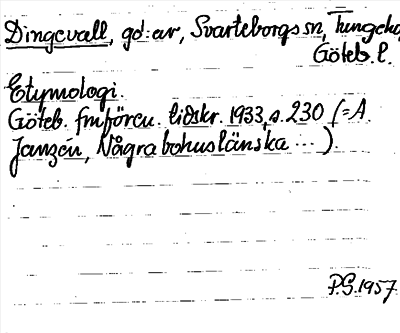 Dingevall, gd:ar, Svarteborgs sn, Tungeho
Göteb. l.
Etymologi.
Göteb. fmfören. tidskr. 1933, s. 230 (= A.
Janzén, Några bohuslänska ... ).
P.G. 1957